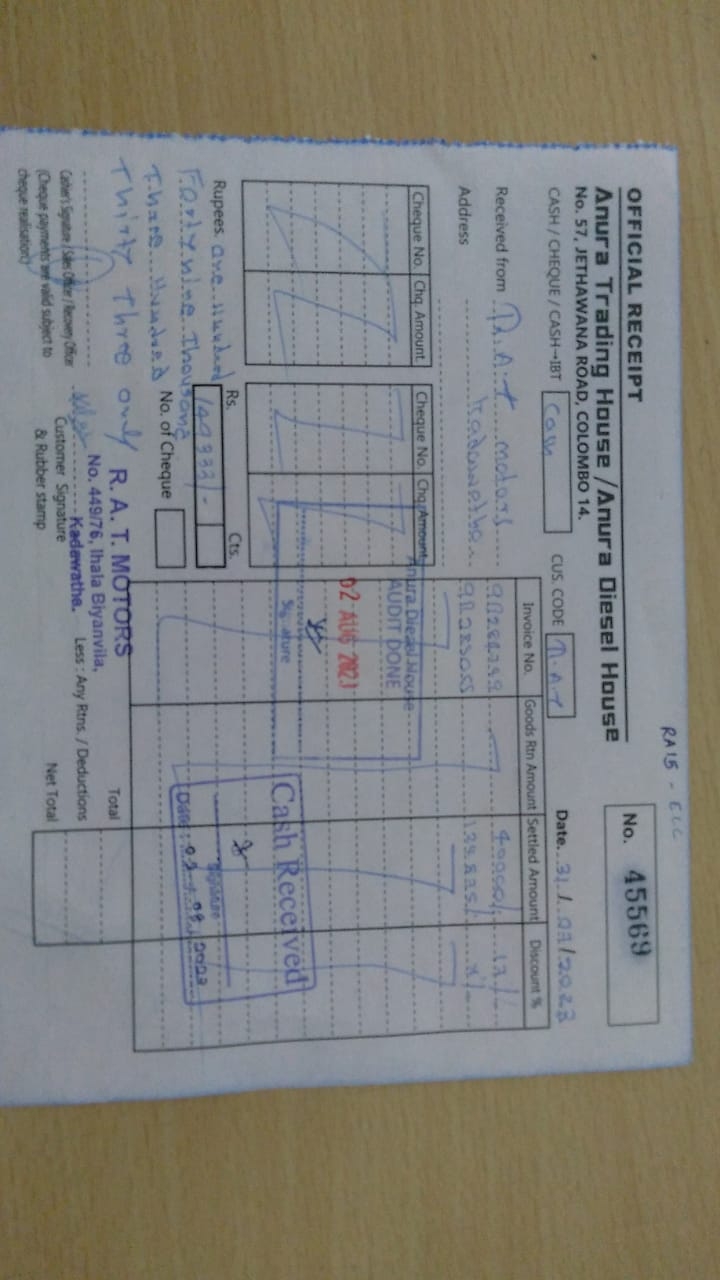 RA15 - ECC
OFFICIAL RECEIPT
No. 45569
Anura Trading House / Anura Diesel House
No. 57, JETHAWANA ROAD, COLOMBO 14.
CASH / CHEQUE / CASH→IBT Cash
CUS. CODE
Date. 31/07/2023
Received from R.A.T motors
Address Kadawatha
Invoice No. Goods Rtn Amount Settled Amount Discount %
Cheque No. Chq. Amount Cheque No. Chq. Amount
Anura Diesel House
AUDIT DONE
02 AUG 2023
Signature
Cash Received
Signature
Date:
Rs. 149333/- Cts.
Rupees. One Hundred
Forty nine Thousand
Three Hundred
Thirty Three only
No. of Cheque
R. A. T. MOTORS
No. 449/76, Ihala Biyanvila,
Kadawatha.
Total
Less : Any Rtns. / Deductions
Net Total
Cashier's Signature / Sales Officer / Recovery Officer
(Cheque payments are valid subject to
cheque realisation.)
Customer Signature
& Rubber stamp